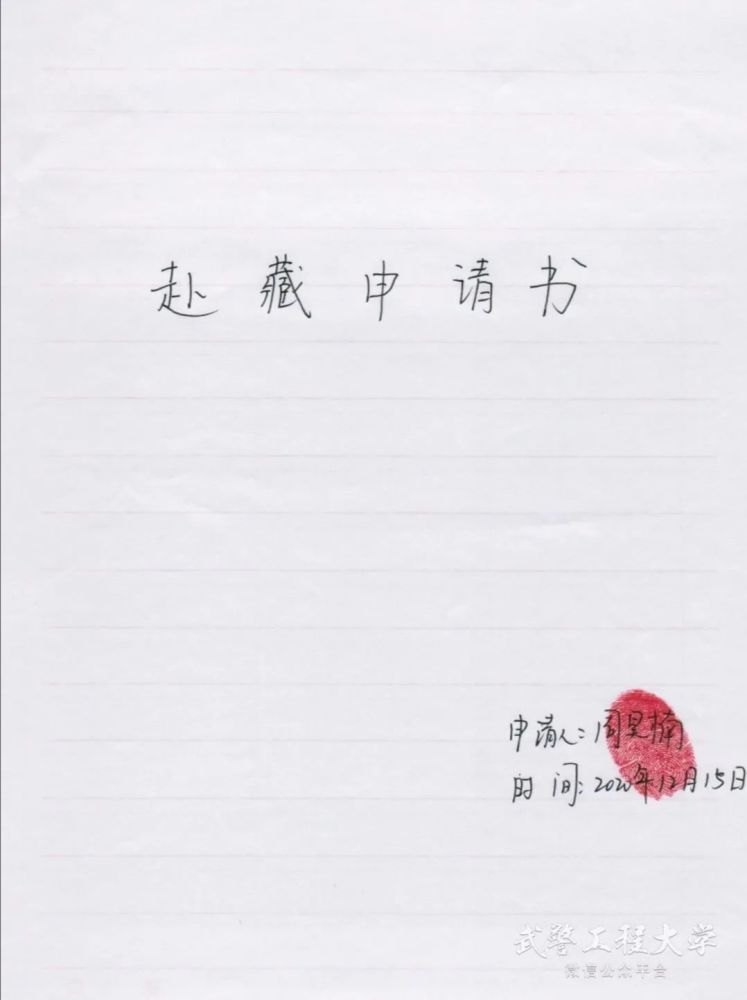 赴藏申请书
申请人：周昊楠
时间：2020年12月15日
武警工程大学
微信公众平台